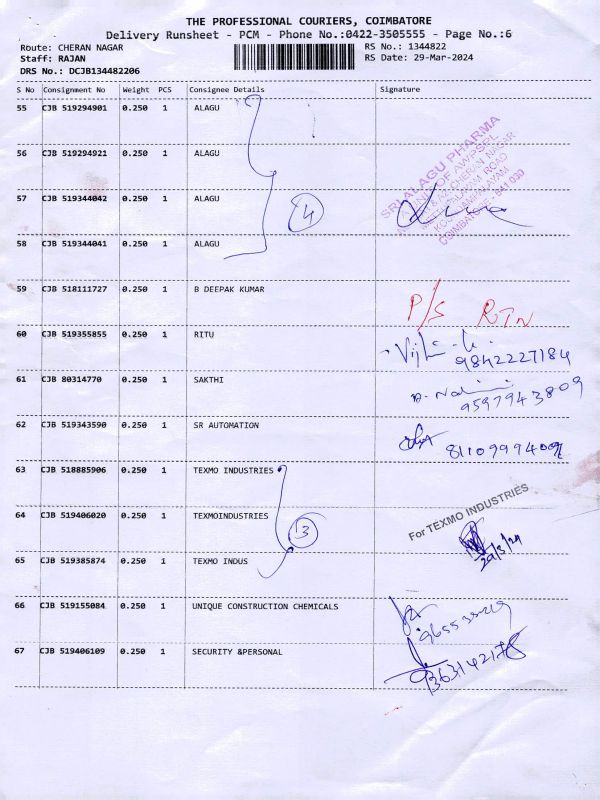 THE PROFESSIONAL COURIERS, COIMBATORE
Delivery Runsheet - PCM - Phone No.:0422-3505555 - Page No.:6
Route: CHERAN NAGAR RS No.: 1344822
Staff: RAJAN RS Date: 29-Mar-2024
DRS No.: DCJB134482206
S No Consignment No Weight PCS Consignee Details Signature
55 CJB 519294901 0.250 1 ALAGU
56 CJB 519294921 0.250 1 ALAGU
SRI ALAGU PHARMA
57 CJB 519344042 0.250 1 ALAGU
4
58 CJB 519344041 0.250 1 ALAGU
59 CJB 518111727 0.250 1 B DEEPAK KUMAR
P/S RTN
60 CJB 519355855 0.250 1 RITU
9842227184
61 CJB 80314770 0.250 1 SAKTHI
9597943809
62 CJB 519343590 0.250 1 SR AUTOMATION
63 CJB 518885906 0.250 1 TEXMO INDUSTRIES
For TEXMO INDUSTRIES
64 CJB 519406020 0.250 1 TEXMOINDUSTRIES
3
29/3/24
65 CJB 519385874 0.250 1 TEXMO INDUS
66 CJB 519155084 0.250 1 UNIQUE CONSTRUCTION CHEMICALS
67 CJB 519406109 0.250 1 SECURITY &PERSONAL